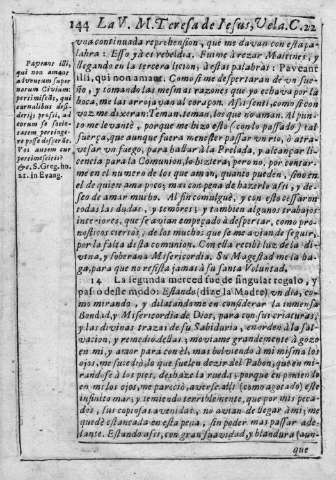 144 La V. M. Teresa de Iesus, Vela. C. 22
vna continuada reprehension, que me davan con esta pa-
labra: Esso ya es rebeldia. Fuime à rezar Maitines, y
llegando en la tercera licion, à estas palabras: Paveant
illi, qui non amant. Como si me despertaran de vn sue-
ño, y tomando las mesmas razones que yo echava por la
boca, me las arrojavan al coraçon. Assi senti, como si con
voz me dixeran: Teman, teman, los que no aman. Al pun-
to me levantè, porque me hizo esto (con lo passado) tal
fuerça, que aunque fuera menester passar vn rio, ò atra-
vesar vn fuego, para hablar à la Prelada, y alcançar li-
cencia para la Comunion, lo hiziera; pero no, por contar-
me en el numero de los que aman, quanto pueden, sino en
el de quien ama poco; mas con pena de hazerlo assi, y de-
seo de amar mucho. Al fin comulguè, y con esto cessaron
todas las dudas, y temores; y tambien algunos trabajos
interiores, que se avian empeçado à despertar, como pro-
nosticos ciertos, de los muchos que se me avian de seguir,
por la falta desta comunion. Con ella recibi luz de la di-
vina, y soberana Misericordia. Su Magestad me la ha-
ga, para que no resista jamàs à su santa Voluntad.
14 La segunda merced fue de singular regalo, y
passò deste modo: Estando (dize la Madre) vn dia, co-
mo mirando, y dilatandome en considerar la inmensa
Bondad, y Misericordia de Dios, para con sus criaturas,
y las divinas trazas de su Sabiduria, en orden à la sal-
vacion, y remedio dellas; moviame grandemente à gozo
en mi, y amor para con èl; mas bolviendo à mi misma los
ojos, me sucediò lo que suelen dezir del Pabon, que en mi-
randose à los pies, deshaze la rueda: porque en poniendo
en mi los ojos, me pareciò, averse alli (como agotado) este
infinito mar; y temiendo terriblemente, que por mis peca-
dos, sus copiosas avenidas, no avian de llegar à mi; me
quedè estancada en esta pena, sin poder mas passar ade-
lante. Estando assi, con gran suavidad, y blandura (aun-
que
Paveant illi,
qui non amant
advenum super